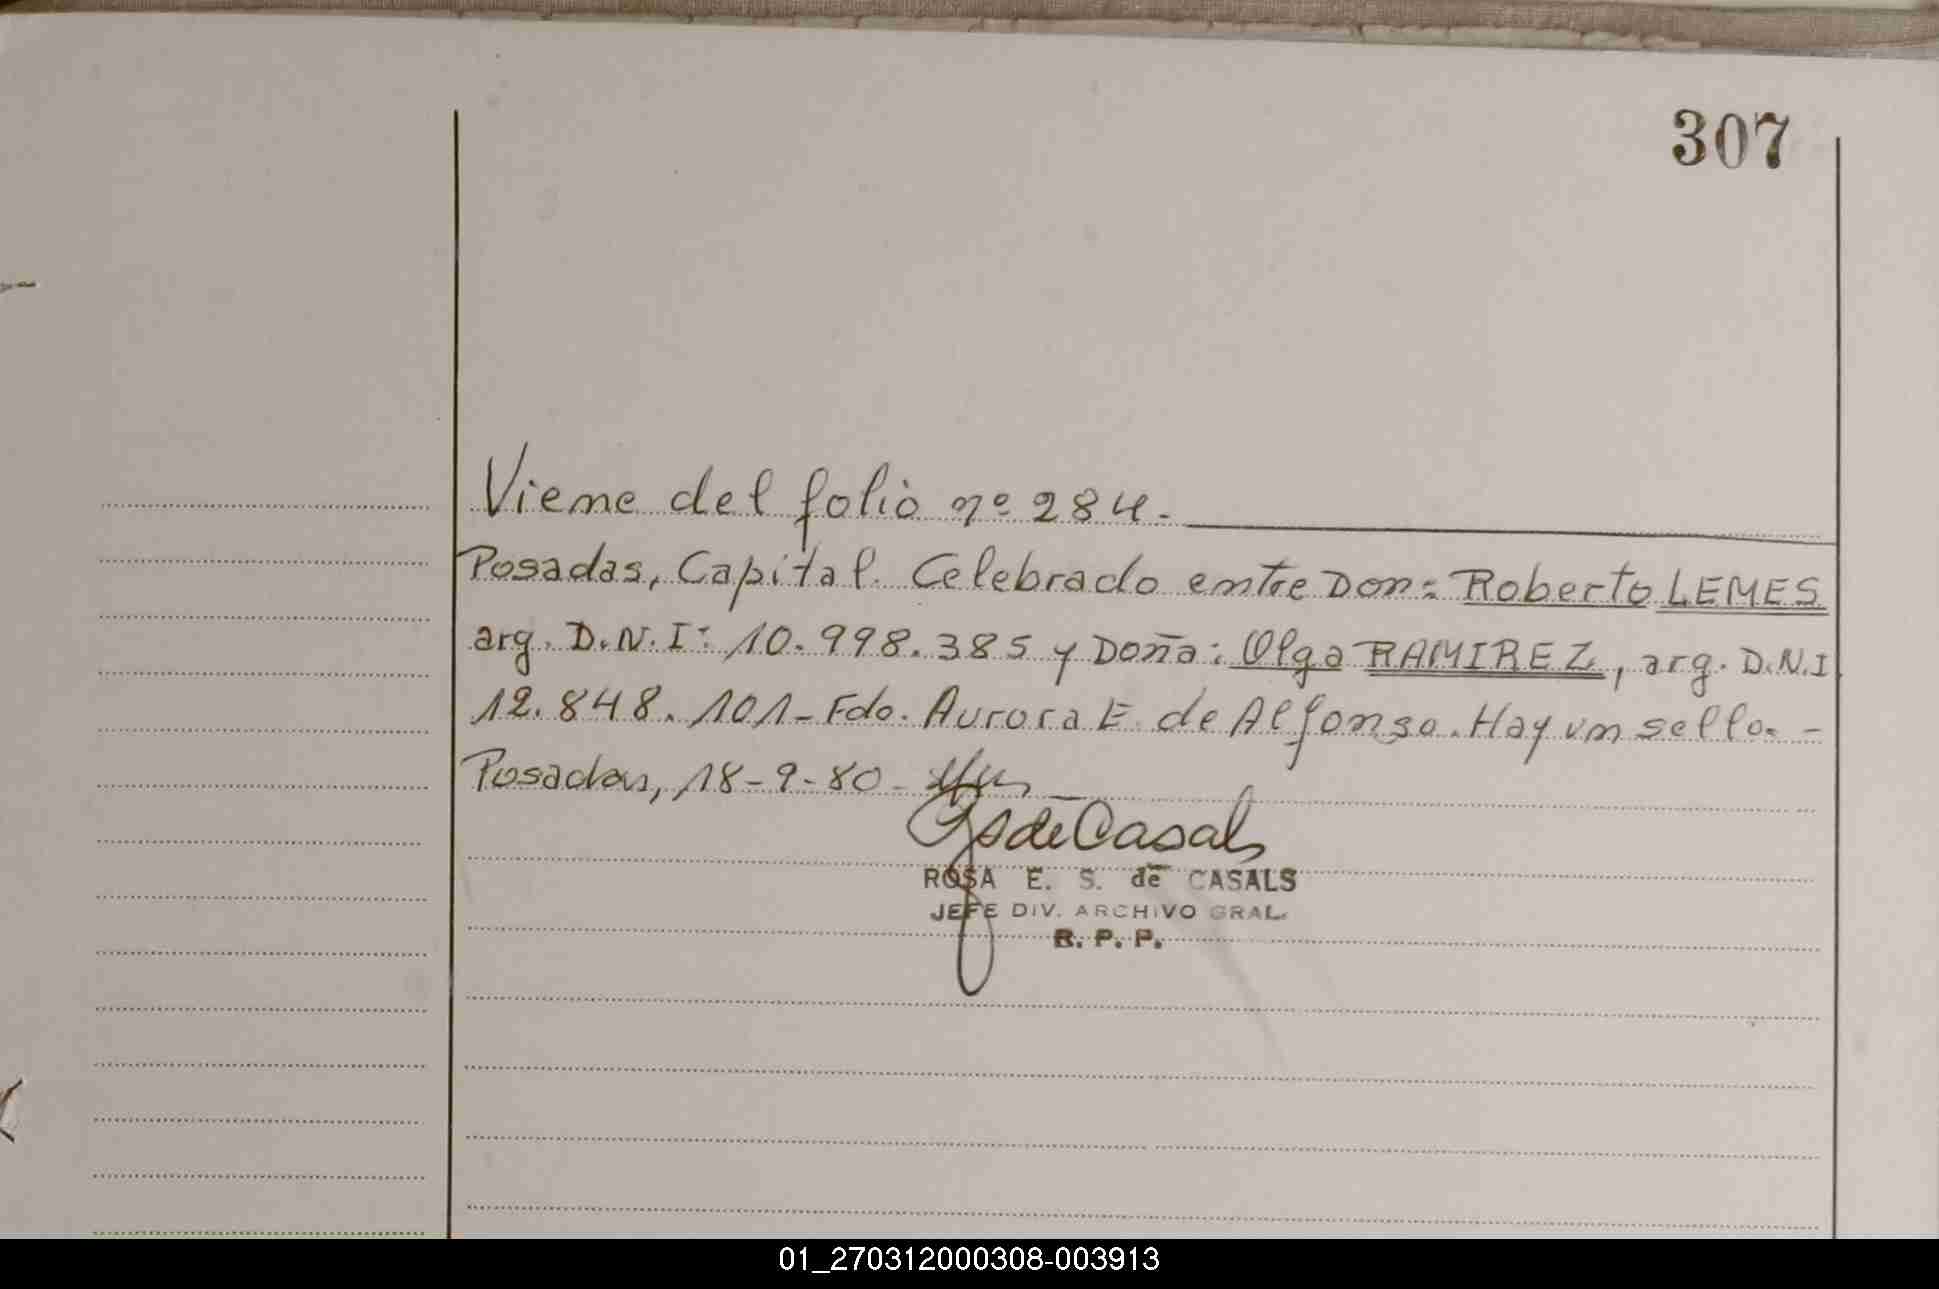 307
Viene del folio nº 284.-
Posadas, Capital. Celebrado entre Don: Roberto LEMES
arg. D.N.I: 10.998.385 y Doña: Olga RAMIREZ, arg. D.N.I
12.848.101- Fdo. Aurora E. de Alfonso. Hay un sello.-
Posadas, 18-9-80-
de Casals
ROSA E. S. de CASALS
JEFE DIV. ARCHIVO GRAL.
R. P. P.
01_270312000308-003913